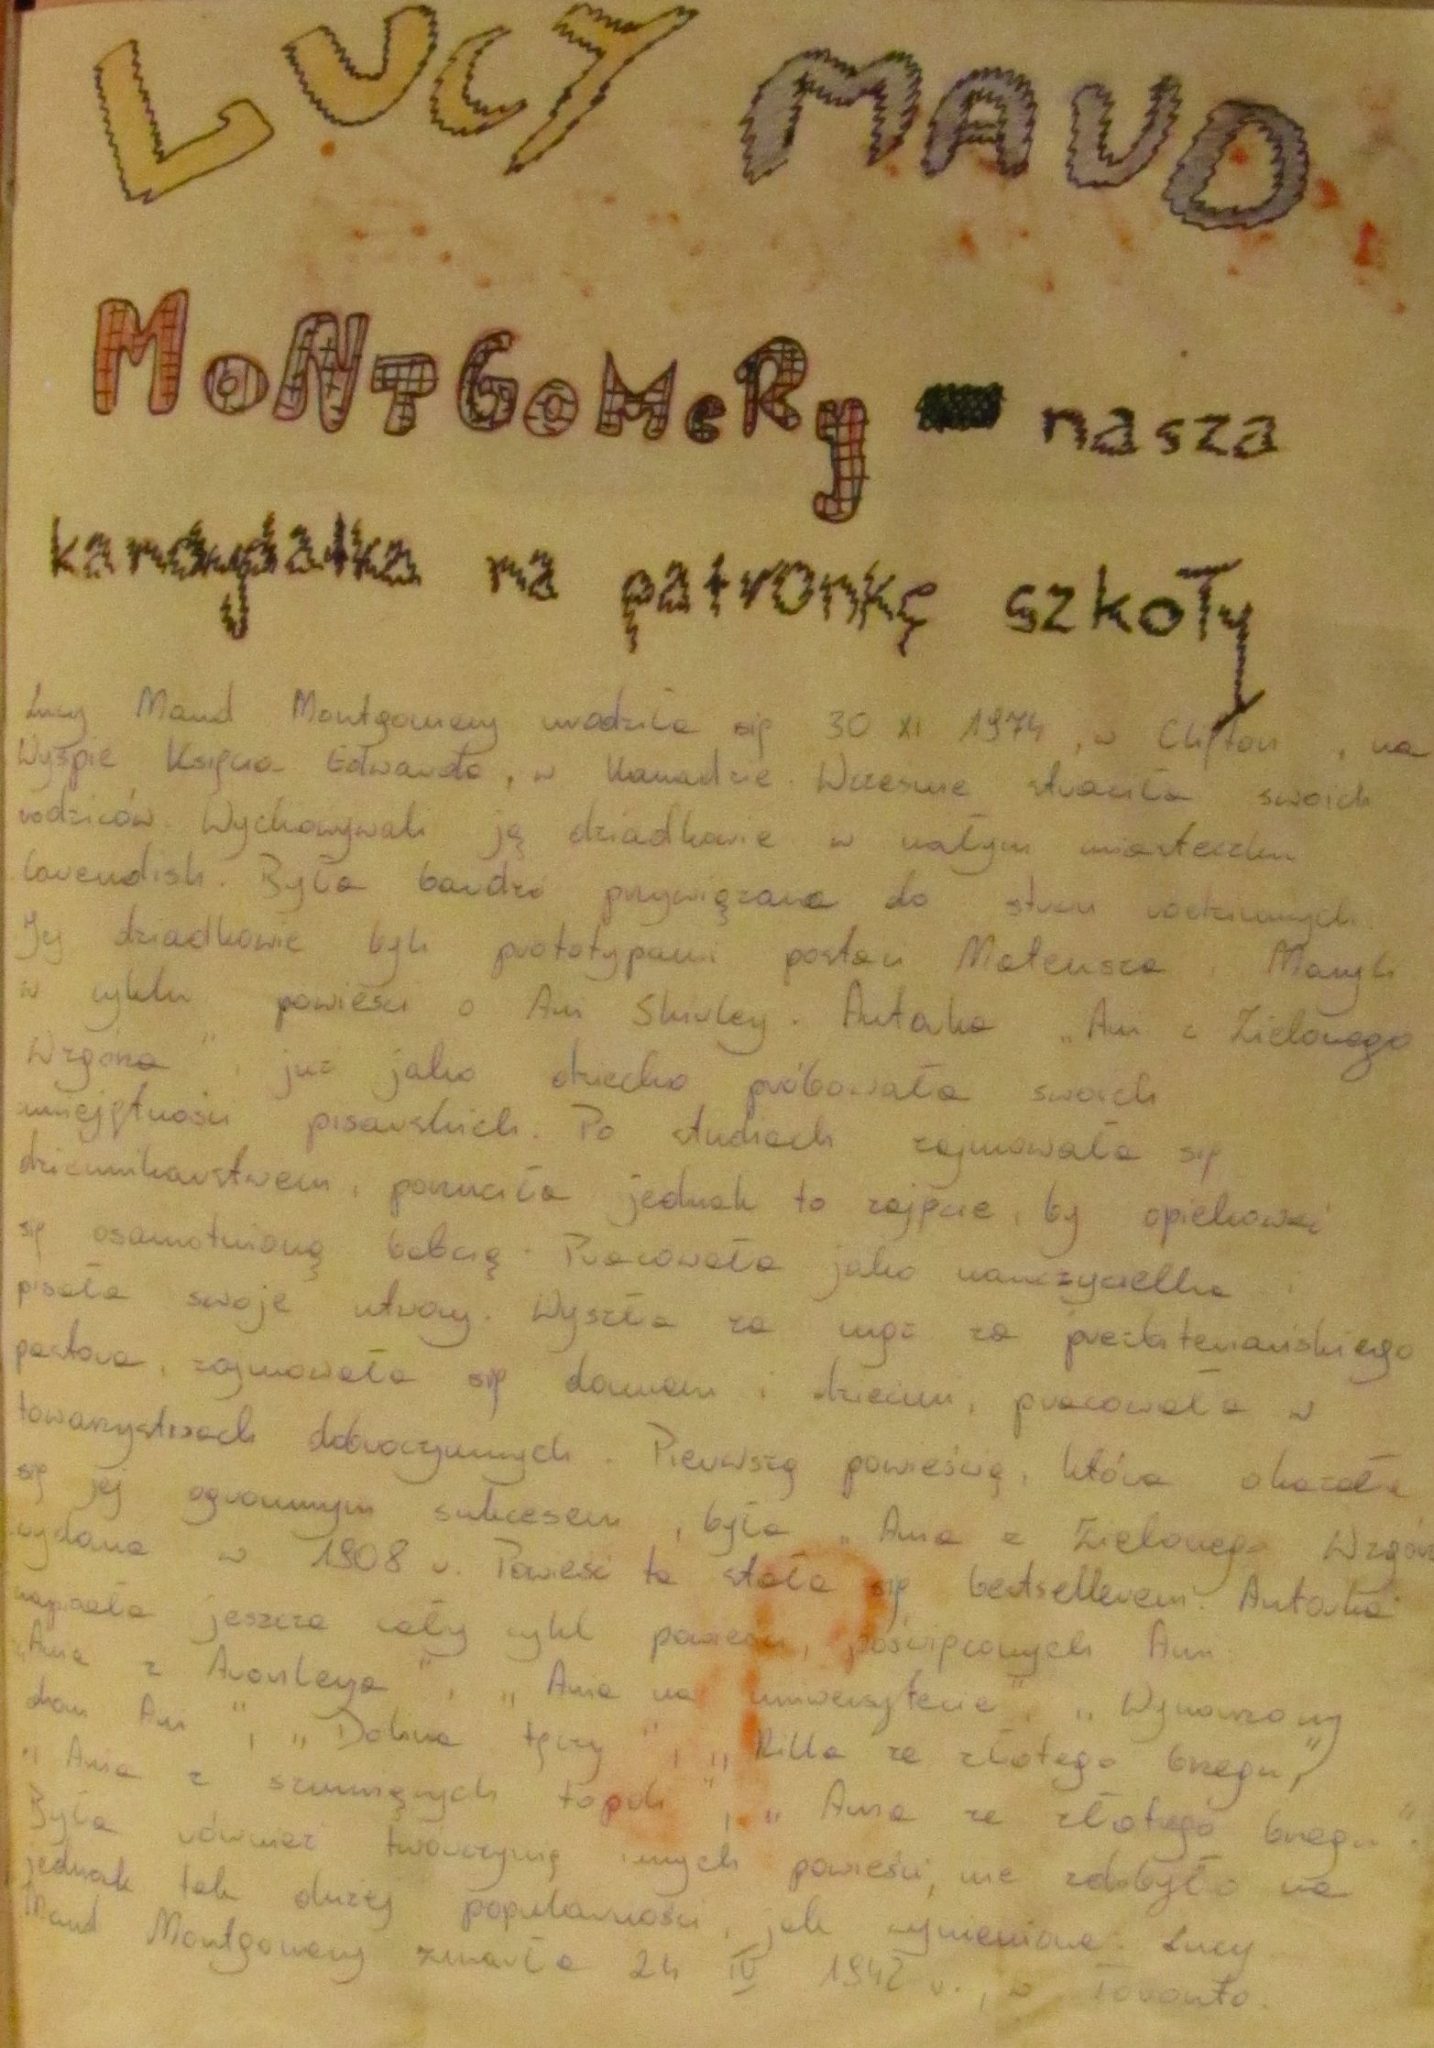 LUCY MAUD
MONTGOMERY - nasza
kandydatka na patronkę szkoły
Lucy Maud Montgomery urodziła się 30 XI 1974, w Clifton, na
Wyspie Księcia Edwarda, w Kanadzie. Wcześnie straciła swoich
rodziców. Wychowywali ją dziadkowie w małym miasteczku
Cavendish. Była bardzo przywiązana do stron rodzinnych.
Jej dziadkowie byli prototypami postaci Mateusza i Maryli
w cyklu powieści o Ani Shirley. Autorka „Ani z Zielonego
Wzgórza", już jako dziecko próbowała swoich
umiejętności pisarskich. Po studiach zajmowała się
dziennikarstwem, porzuciła jednak to zajęcie, by opiekować
się osamotnioną babcią. Pracowała jako nauczycielka i
pisała swoje utwory. Wyszła za mąż za prezbiteriańskiego
pastora, zajmowała się domem i dziećmi, pracowała w
towarzystwach dobroczynnych. Pierwszą powieścią, która okazała
się jej ogromnym sukcesem, była „Ania z Zielonego Wzgórza
wydana w 1908 r. Powieść ta stała się bestsellerem. Autorka
napisała jeszcze cały cykl powieści, poświęconych Ani
„Ania z Avonlea", „Ania na uniwersytecie", „Wymarzony
dom Ani", „Dolina tęczy", „Rilla ze złotego brzegu",
„Ania z szumiących topoli", „Ania ze złotego brzegu".
Była również twórczynią innych powieści, nie zdobyła na
jednak tak dużej popularności, jak wymienione. Lucy
Maud Montgomery zmarła 24 IV 1942 r., w Toronto.